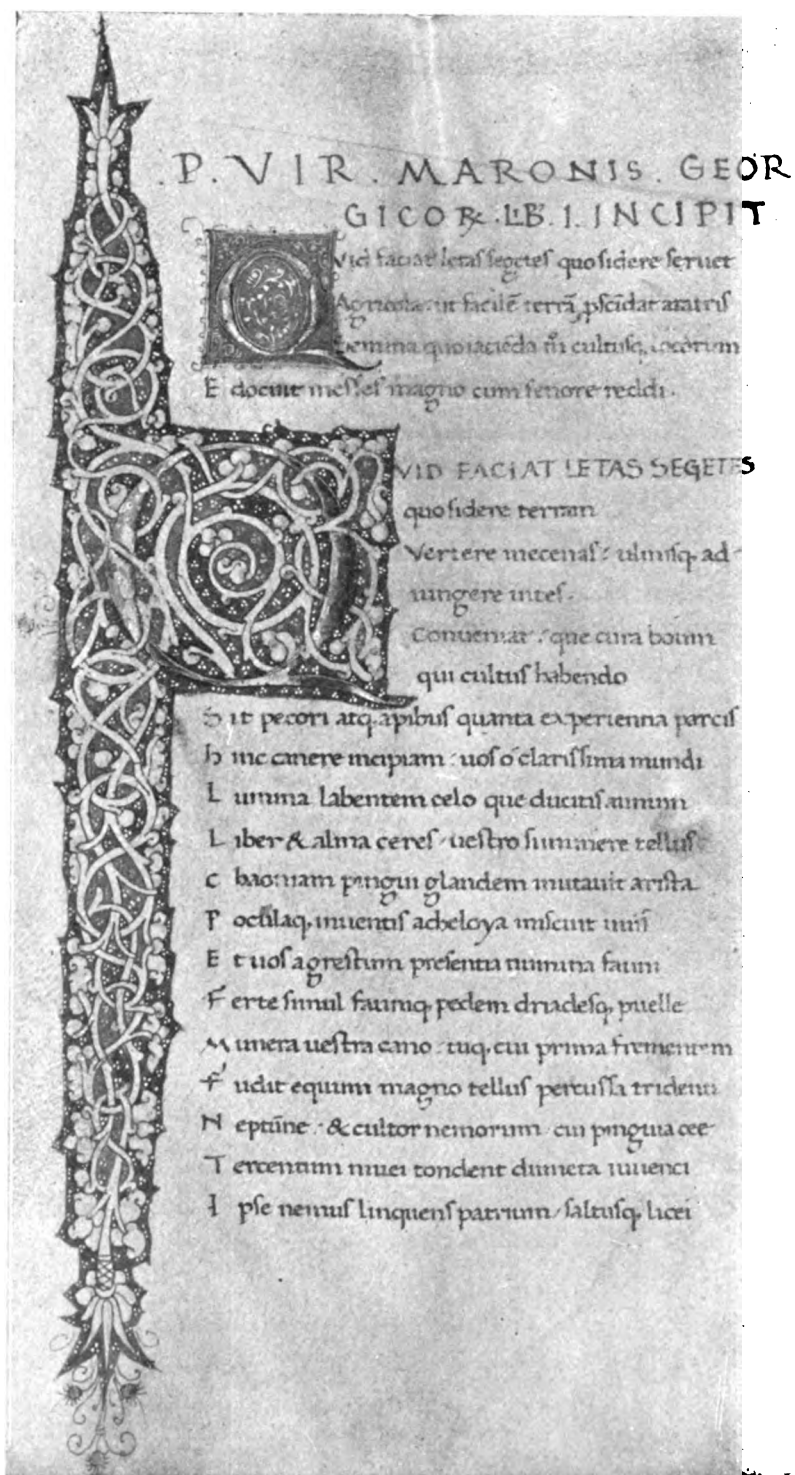 .P. VIR. MARONIS. GEOR
GICOꝜ. LIB. I. INCIPIT
QVid faciat letas segetes quo sidere seruet
Agricola ut facilē terrā pscīdat aratris
Semina quo iaciēda m̄ cultusq, locorum
E docuit messes magno cum fenore reddi.
QVID FACIAT LETAS SEGETES
quo sidere terram
Vertere mecenas: ulmisq, ad
iungere uites.
Conueniat: que cura boum
qui cultus habendo
S it pecori atq, apibus quanta experientia parcis
h inc canere incipiam: uos o clarissima mundi
L umina labentem celo que ducitis annum
L iber & alma ceres uestro si munere tellus
C haoniam pingui glandem mutauit arista
P oculaq, inuentis acheloya miscuit uuis
E t uos agrestum presentia numina fauni
F erte simul fauniq, pedem driadesq, puelle
M unera uestra cano: tuq, cui prima frementem
F udit equum magno tellus percussa tridenti
N eptūne. & cultor nemorum cui pinguia cee
T ercentum niuei tondent dumeta iuuenci
I pse nemus linquens patrium / saltusq, licei